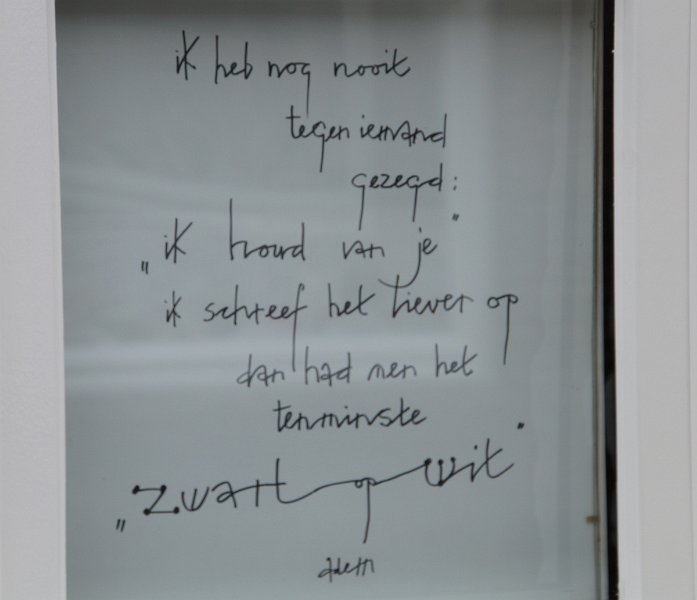 ik heb nog nooit
tegen iemand
gezegd:
„ik houd van je"
ik schreef het liever op
dan had men het
tenminste
„zwart op wit"